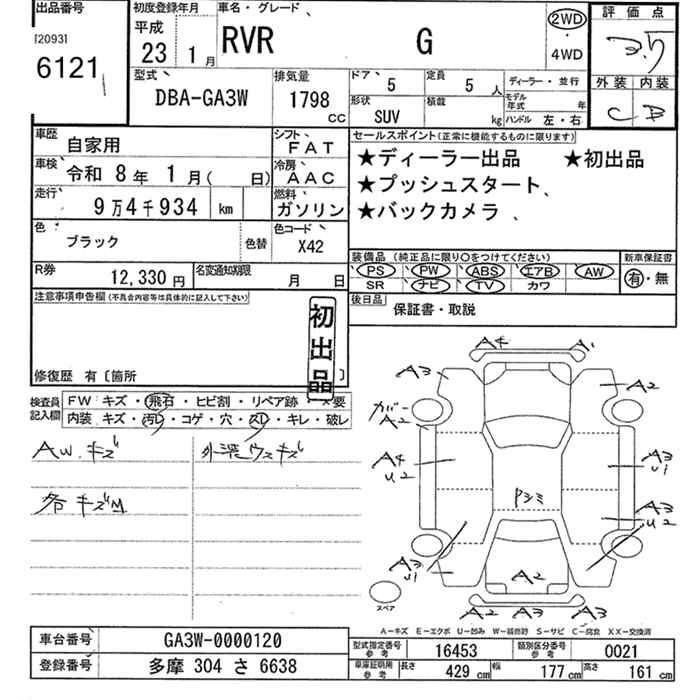 出品番号
[2093]
6121
初度登録年月
平成
23年 1月
車名・グレード
RVR G
2WD
・
4WD
評価点
外装 内装
C B
型式
DBA-GA3W
排気量
1798
cc
ドア 5
定員 5人
形状 SUV
積載 kg
ディーラー・並行
モデル年式 年
ハンドル 左・右
車歴 自家用
シフト FAT
車検 令和 8年 1月( 日)
冷房 AAC
走行 9万4千934 km
燃料 ガソリン
色 ブラック
色替
色コード X42
R券 12,330円
名変通知期限 月 日
セールスポイント(正常に機能するものに限ります)
★ディーラー出品 ★初出品
★プッシュスタート、
★バックカメラ 、
装備品 (純正品に限り○をつけてください)
PS PW ABS エアB AW
SR ナビ TV カワ
新車保証書
有・無
後日品 保証書・取説
注意事項申告欄(不具合内容等は具体的に記入して下さい)
初出品
修復歴 有〔箇所 〕
検査員記入欄
FW キズ・飛石・ヒビ割・リペア跡・×要
内装 キズ・汚レ・コゲ・穴・スレ・キレ・破レ
AW.キズ
各キズM
A4 A1
A3 A2
カバー
A2
A4
U2
A3
U1
Pシミ
A3
U2
A3
U1
A2
A2 A3
スペア
A-キズ E-エクボ U-凹み W-補修跡 S-サビ C-腐食 XX-交換済
車台番号 GA3W-0000120
登録番号 多摩 304 さ 6638
型式指定番号 参考 16453
類別区分番号 参考 0021
車庫証明用 参考 長さ 429 cm 幅 177 cm 高さ 161 cm